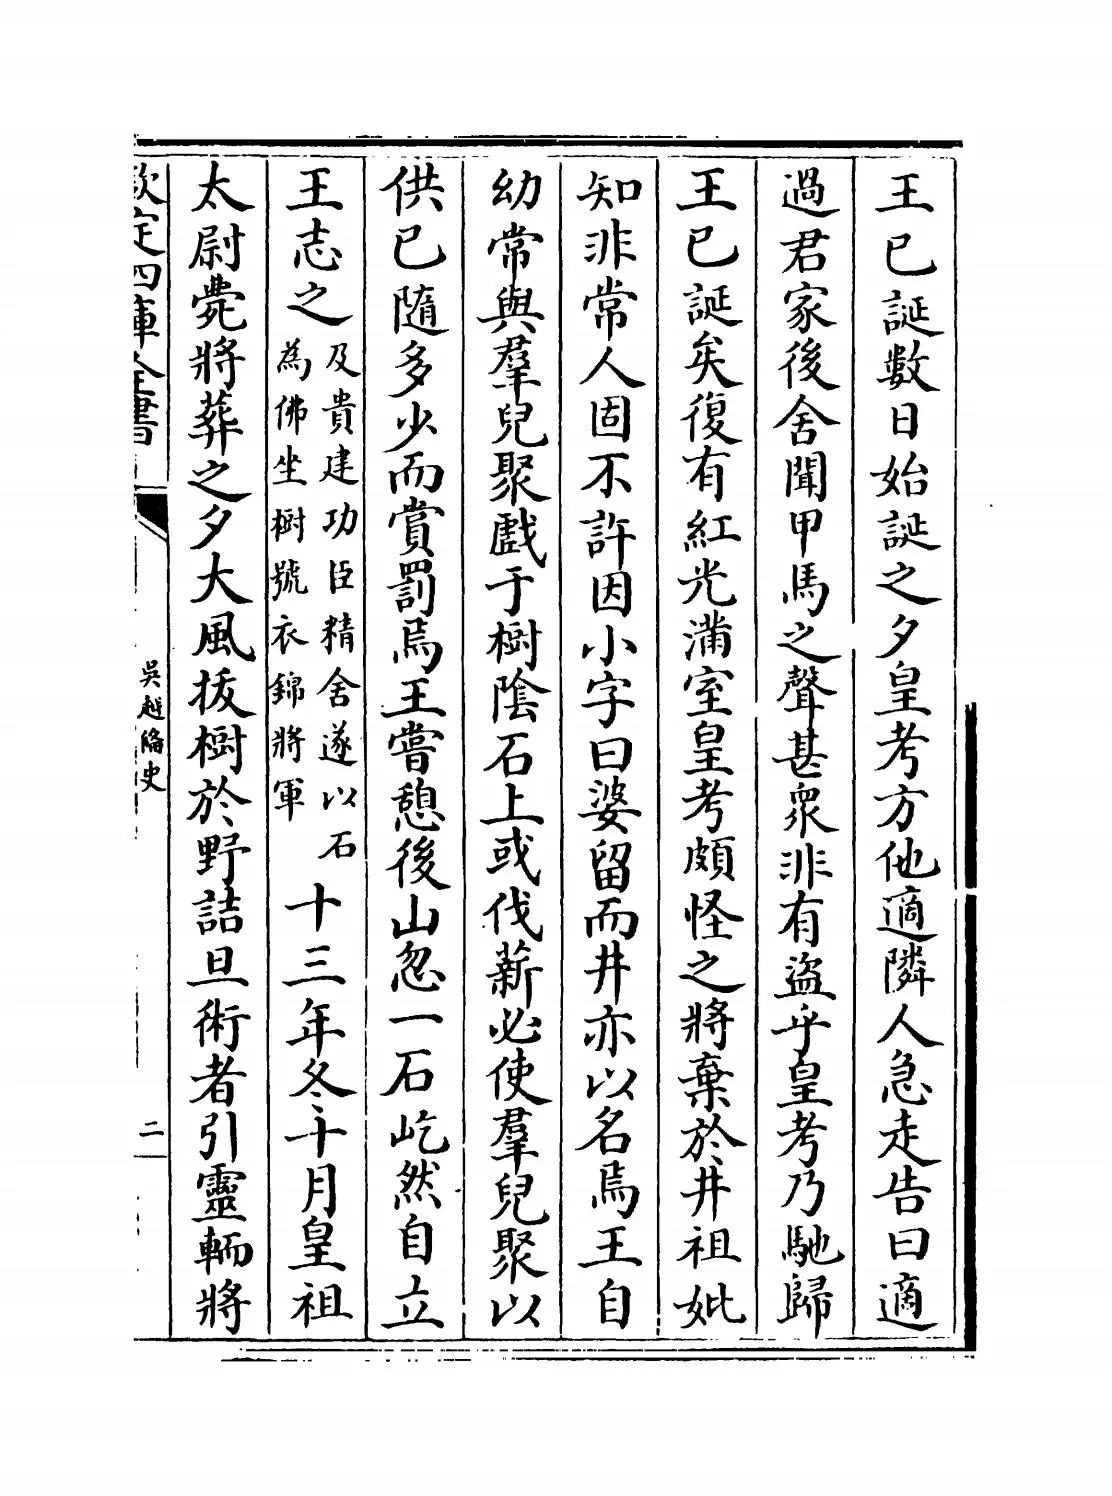 王已誕數日始誕之夕皇考方他適隣人急走告曰適
過君家後舍聞甲馬之聲甚衆非有盜乎皇考乃馳歸
王已誕矣復有紅光滿室皇考頗怪之將棄於井祖妣
知非常人固不許因小字曰婆留而井亦以名焉王自
幼常與羣兒聚戲于樹陰石上或伐薪必使羣兒聚以
供已隨多少而賞罰焉王嘗憩後山忽一石屹然自立
王志之
及貴建功臣精舍遂以石
為佛坐樹號衣錦將軍
十三年冬十月皇祖
太尉薨將葬之夕大風拔樹於野詰旦術者引靈輀將
欽定四庫全書
吳越備史
二